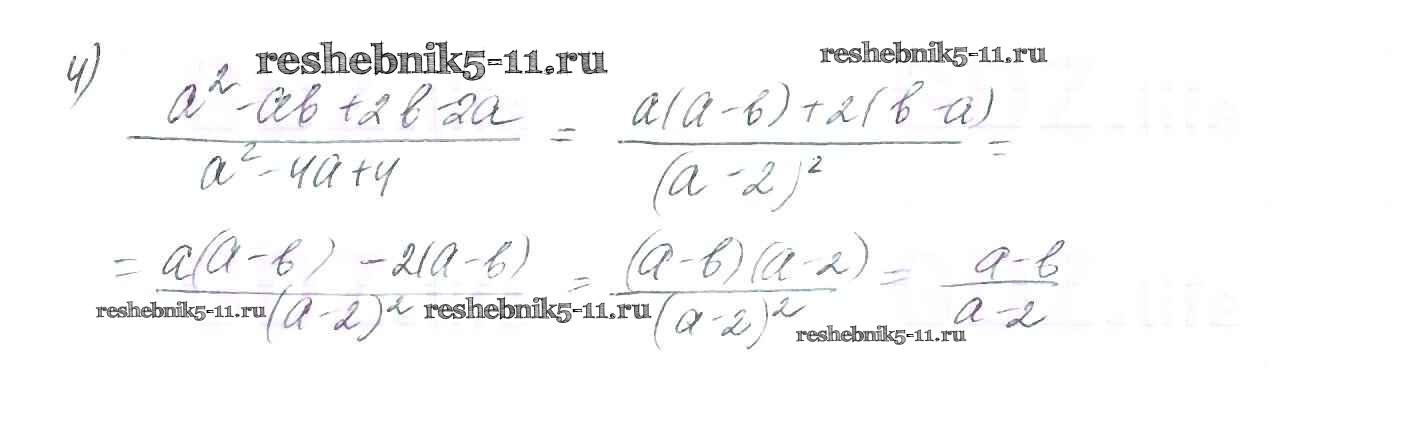 4)
reshebnik5-11.ru reshebnik5-11.ru
a² - ab + 2b - 2a / a² - 4a + 4 = a(a - b) + 2(b - a) / (a - 2)² =
= a(a - b) - 2(a - b) / (a - 2)² = (a - b)(a - 2) / (a - 2)² = a - b / a - 2
reshebnik5-11.ru reshebnik5-11.ru
reshebnik5-11.ru